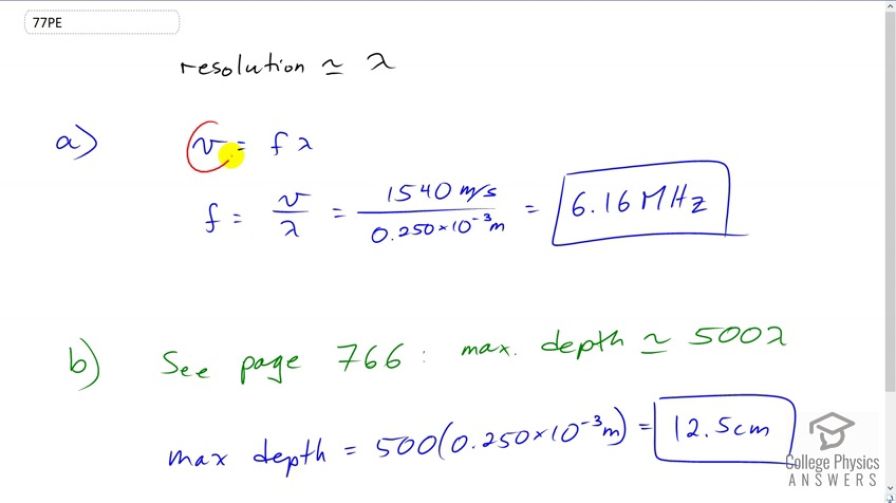 77PE
resolution ≃ λ
a) v = fλ
f = v/λ = 1540 m/s / 0.250×10⁻³m = 6.16 MHz
b) See page 766: max. depth ≃ 500λ
max depth = 500(0.250×10⁻³m) = 12.5cm
College Physics
ANSWERS